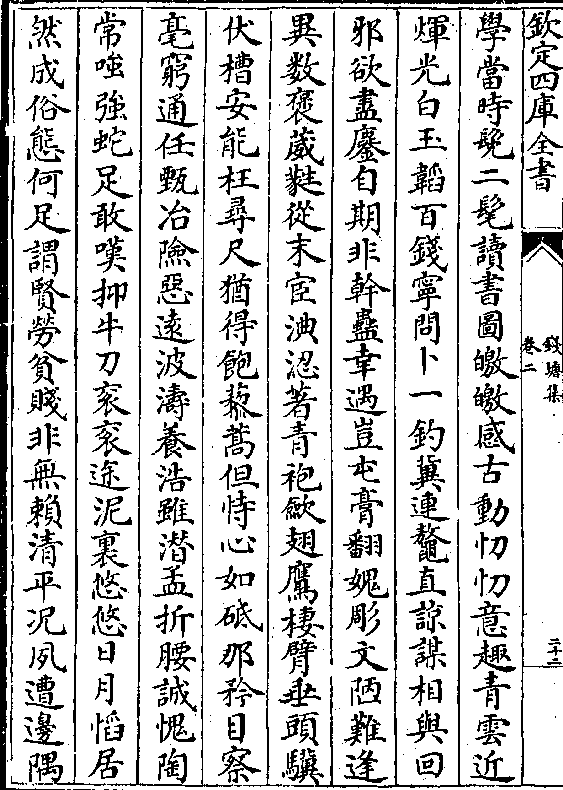 欽定四庫全書
錢塘集
卷二
二十二
學當時髦二髦讀書圖皦皦感古動忉忉意趣青雲近
煇光白玉韜百錢寧問卜一釣冀連鼇直諒謀相與回
邪欲盡鏖自期非幹蠱幸遇豈屯膏翻媿彫文陋難逢
異数褒葳蕤從末宦淟涊著青袍歛翅鷹棲臂垂頭驥
伏槽安能枉尋尺猶得飽藜蒿但恃心如砥那矜目察
毫窮通任甄冶險惡遠波濤養浩雖潜孟折腰誠愧陶
常嗤強蛇足敢嘆抑牛刀衮衮途泥裏悠悠日月慆居
然成俗態何足謂賢勞貧賤非無賴清平况夙遭邊隅